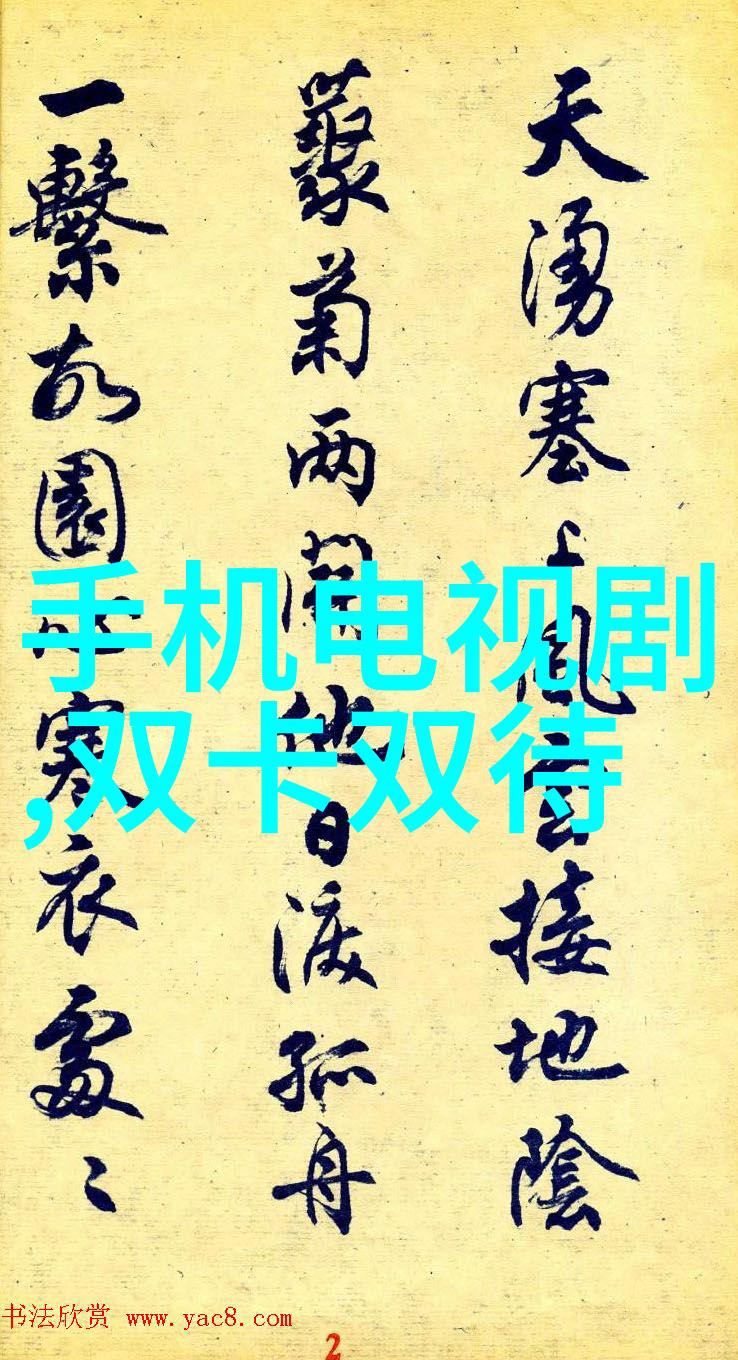 天湧塞上風雲接地陰
藂菊两開他日淚孤舟
一繫故園心寒衣處〻
手机电视剧
,双卡双待
书法欣赏 www.yac8.com
2